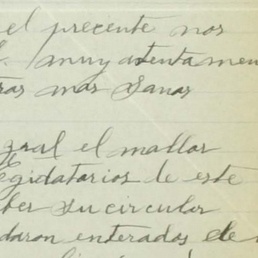 el precente nos
muy atentamen
mas sanas
gral el mallor
egidatarios de este
ber su circular
daron enterados de